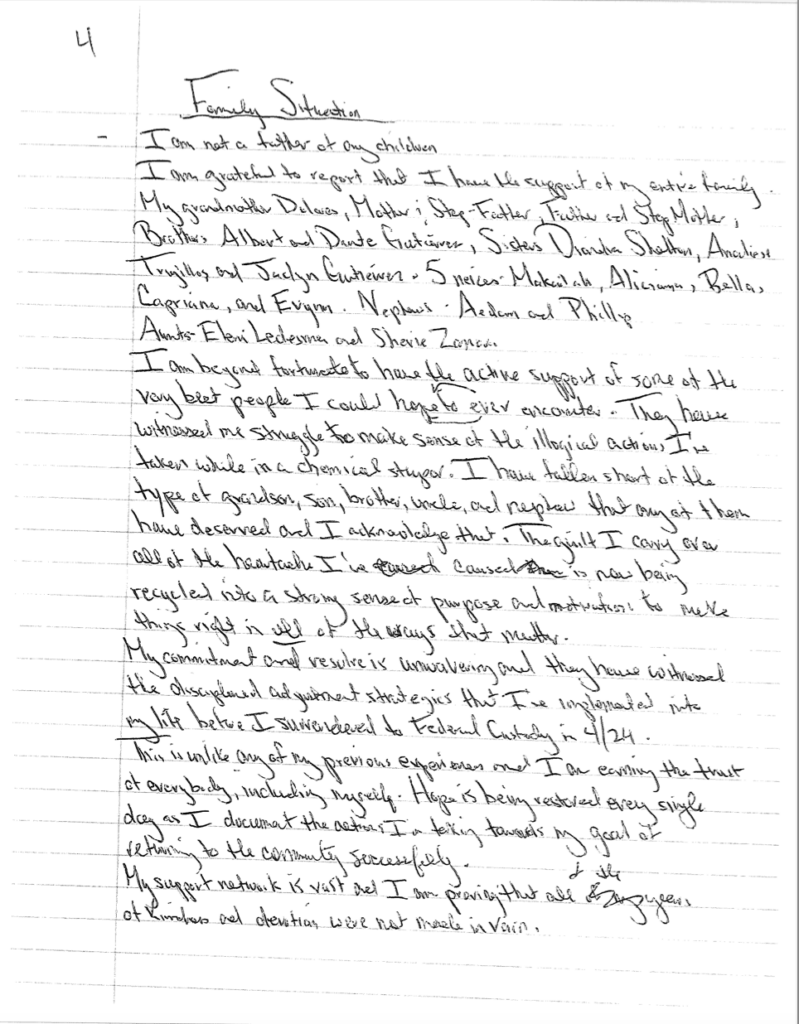 4
Family Situation
- I am not a father of any children
I am grateful to report that I have the support of my entire family.
My grandmother Dolores, Mother & Step-Father, Father and Step Mother,
Brothers Albert and Dante Gutierrez, Sisters Diandra Shelton, Analiese
Trujillo, and Jaclyn Gutierrez. 5 neices - Makailah, Alicianna, Bella,
Capriana, and Evynn. Nephews - Aedam and Phillip
Aunts - Eleni Ledesma and Sherie
I am beyond fortunate to have the active support of some of the
very best people I could hope to ever encounter. They have
witnessed me struggle to make sense of the illogical actions I've
taken while in a chemical stupor. I have fallen short of the
type of grandson, son, brother, uncle, and nephew that any of them
have deserved and I acknowledge that. The guilt I carry over
all of the heartache I've caused is now being
recycled into a strong sense of purpose and motivation to make
things right in all of the ways that matter.
My commitment and resolve is unwavering and they have witnessed
the disciplined adjustment strategies that I've implemented into
my life before I surrendered to Federal Custody in 4/24.
This is unlike any of my previous experiences and I am earning the trust
of everybody, including myself. Hope is being restored every single
day as I document the actions I'm taking towards my goal of
returning to the community successfully.
My support network is vast and I am proving that all of the years
of kindness and devotion were not made in vain.